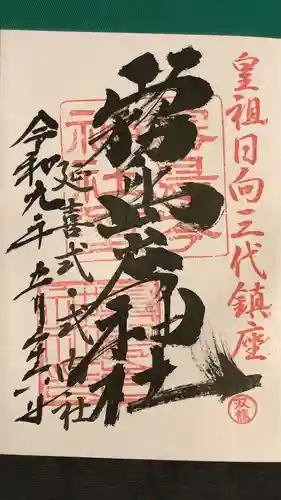 皇祖日向三代鎮座
霧島岑神社
延喜式・式内社
令和元年五月
双龍